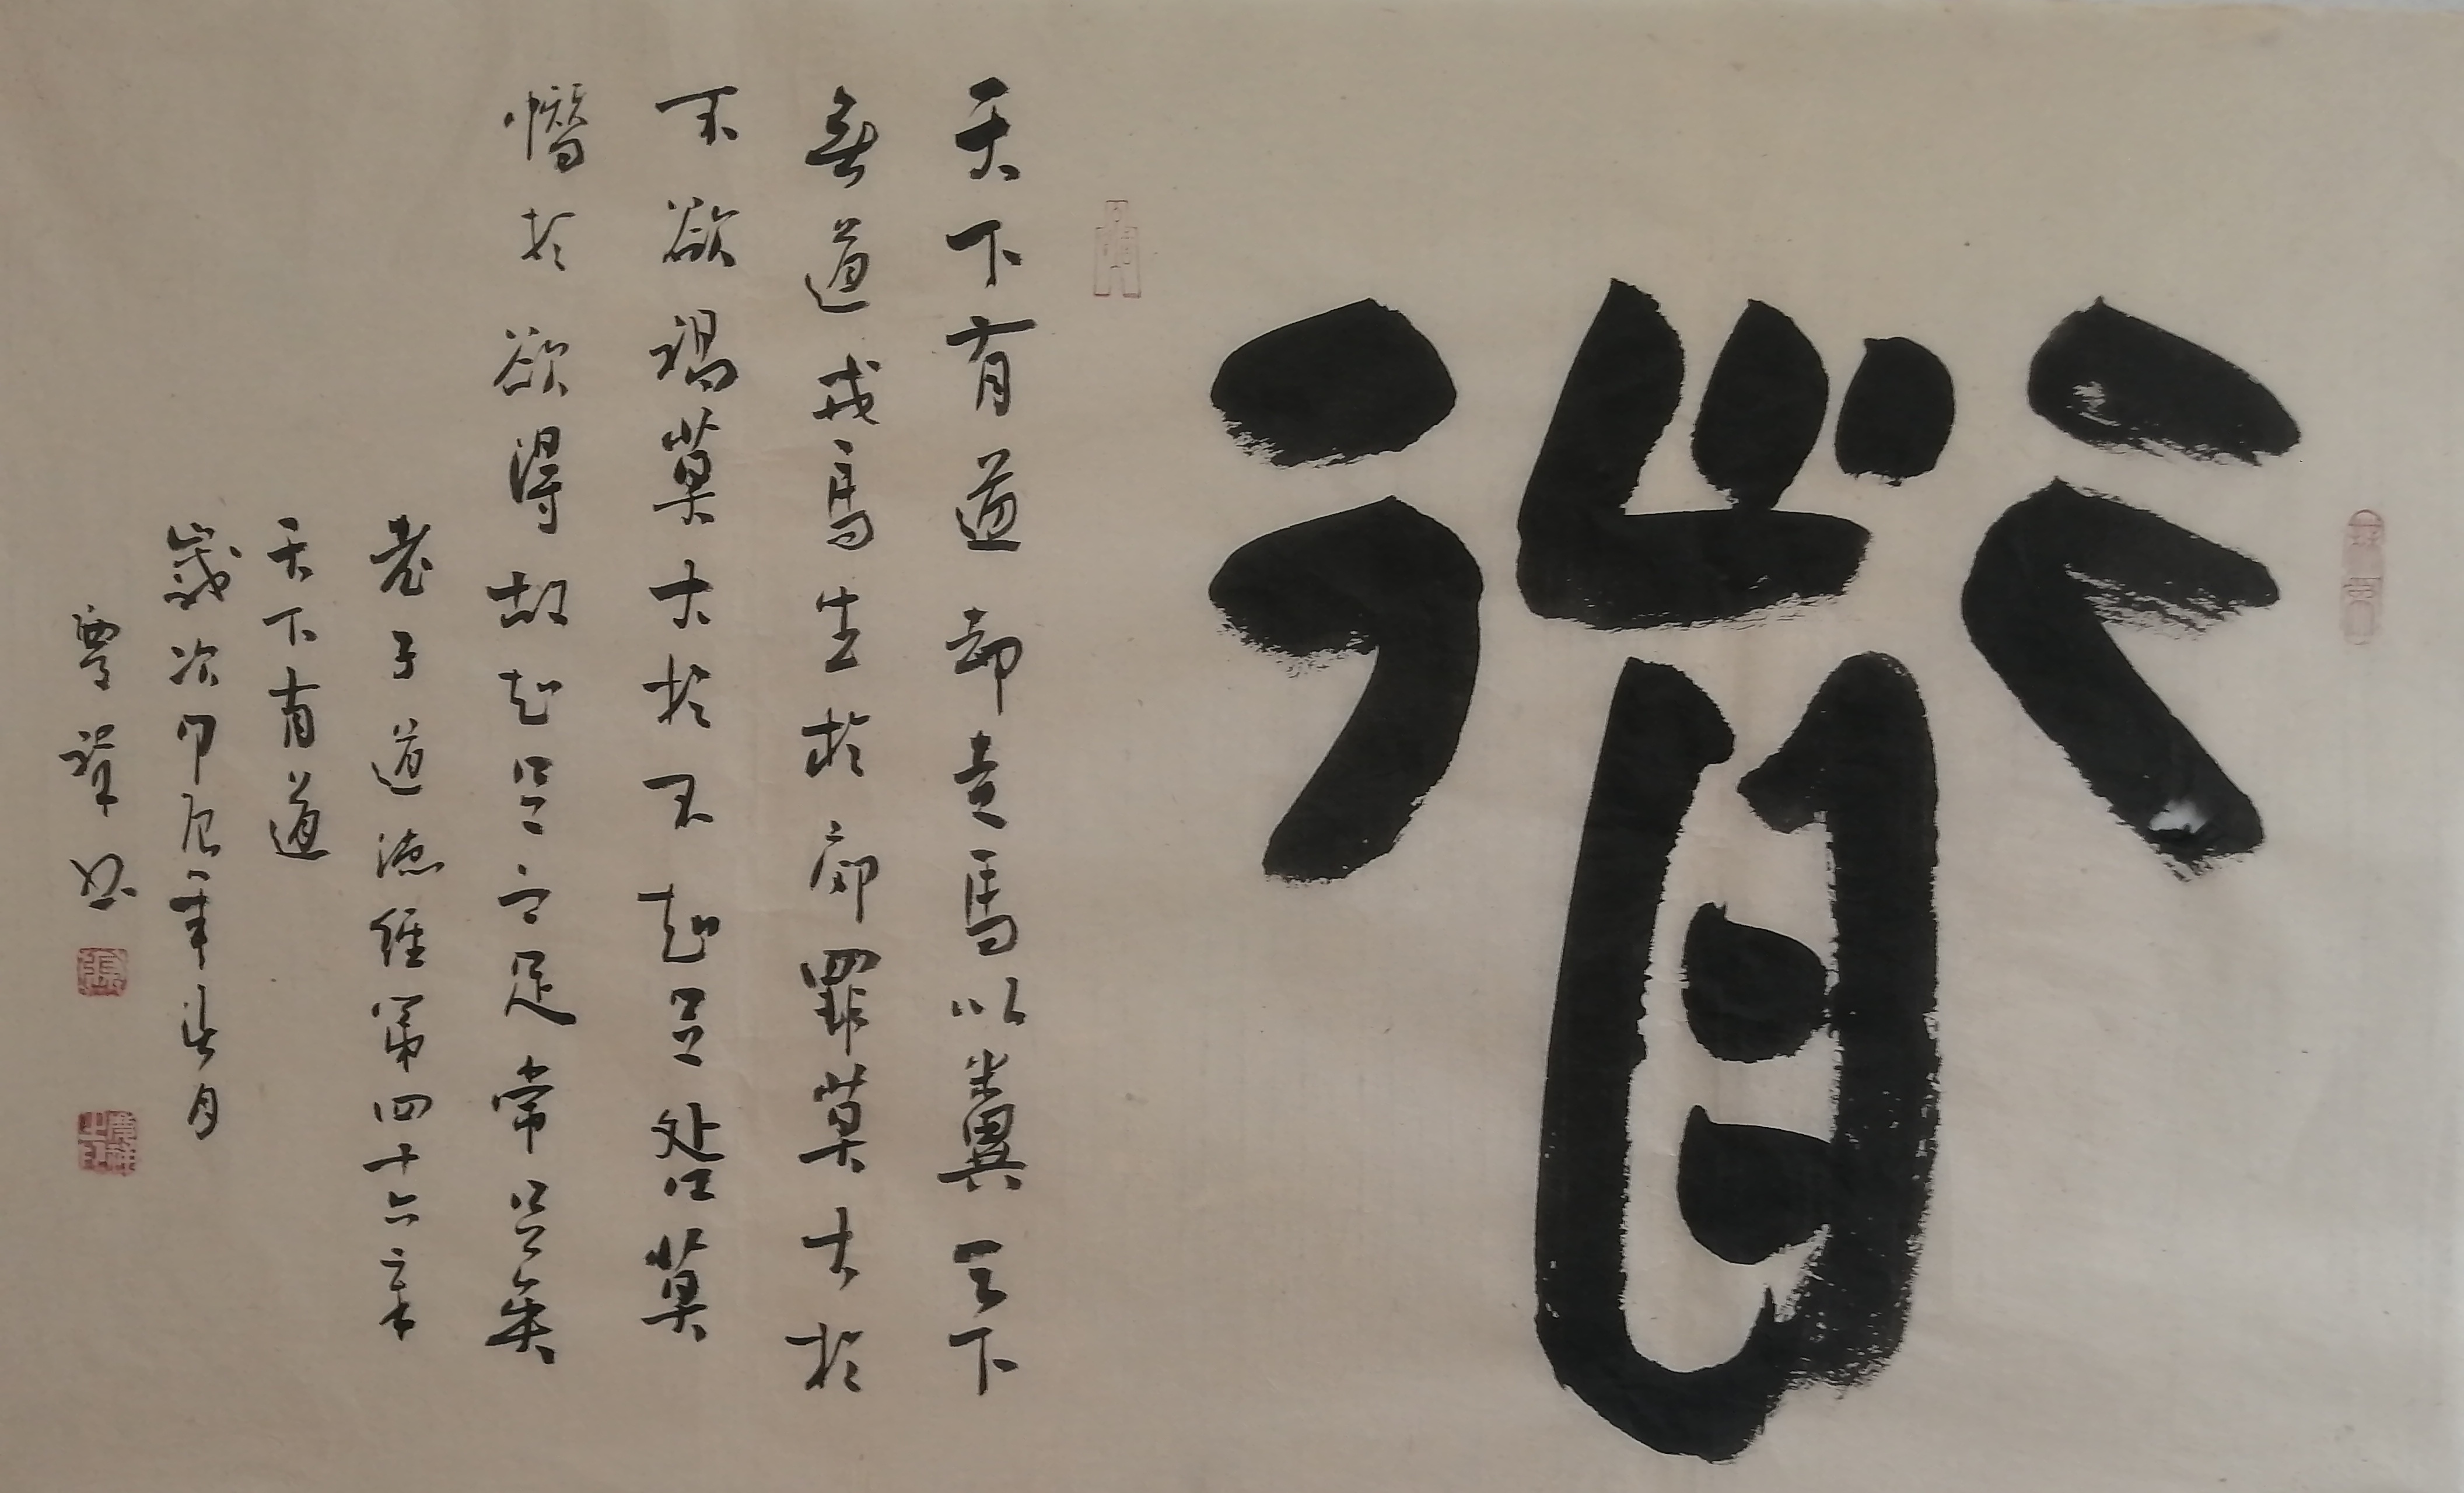 道
天下有道却走馬以糞天下
無道戎馬生於郊罪莫大於
不欲禍莫大於不知足咎莫
憯於欲得故知足之足常足矣
老子道德經第四十六章
天下有道
歲次甲辰年月
慶祥书